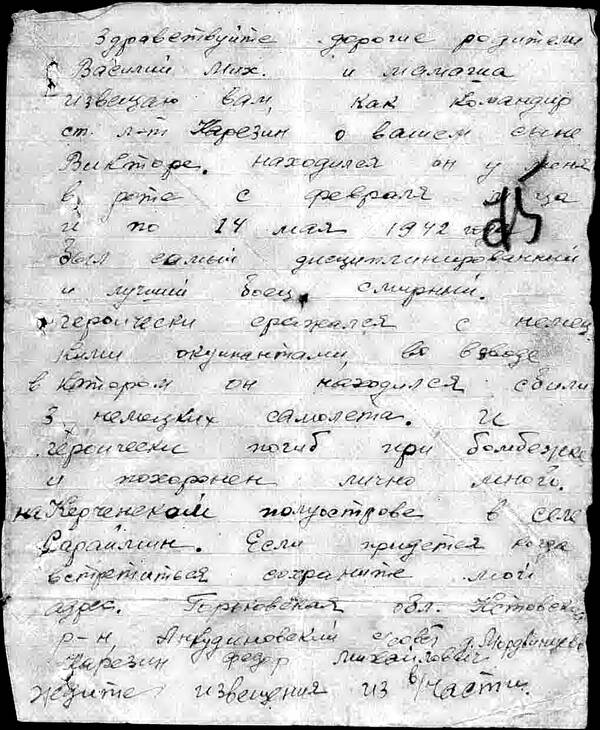 Здравствуйте дорогие родители
Василий Мих. и мамаша
извещаю вам, как командир
ст. л-т Карезин о вашем сыне
Викторе. находился он у меня
в роте с февраля
и по 14 мая 1942 года
был самый дисциплинированный
и лучший боец, смирный.
героически сражался с немец
кими окупантами, во взводе
в котором он находился сбили
3 немецких самолета. И
героически погиб при бомбежке
и похоронен лично мною.
на Керченском полуострове в селе
Сараймин. Если придется когда
встретиться сохраните мой
адрес. Горьковская обл. Кстовский
р-н, Анкудиновский с/совет д.
Карезин Федор Михайлович
Ждите извещения из в/части.